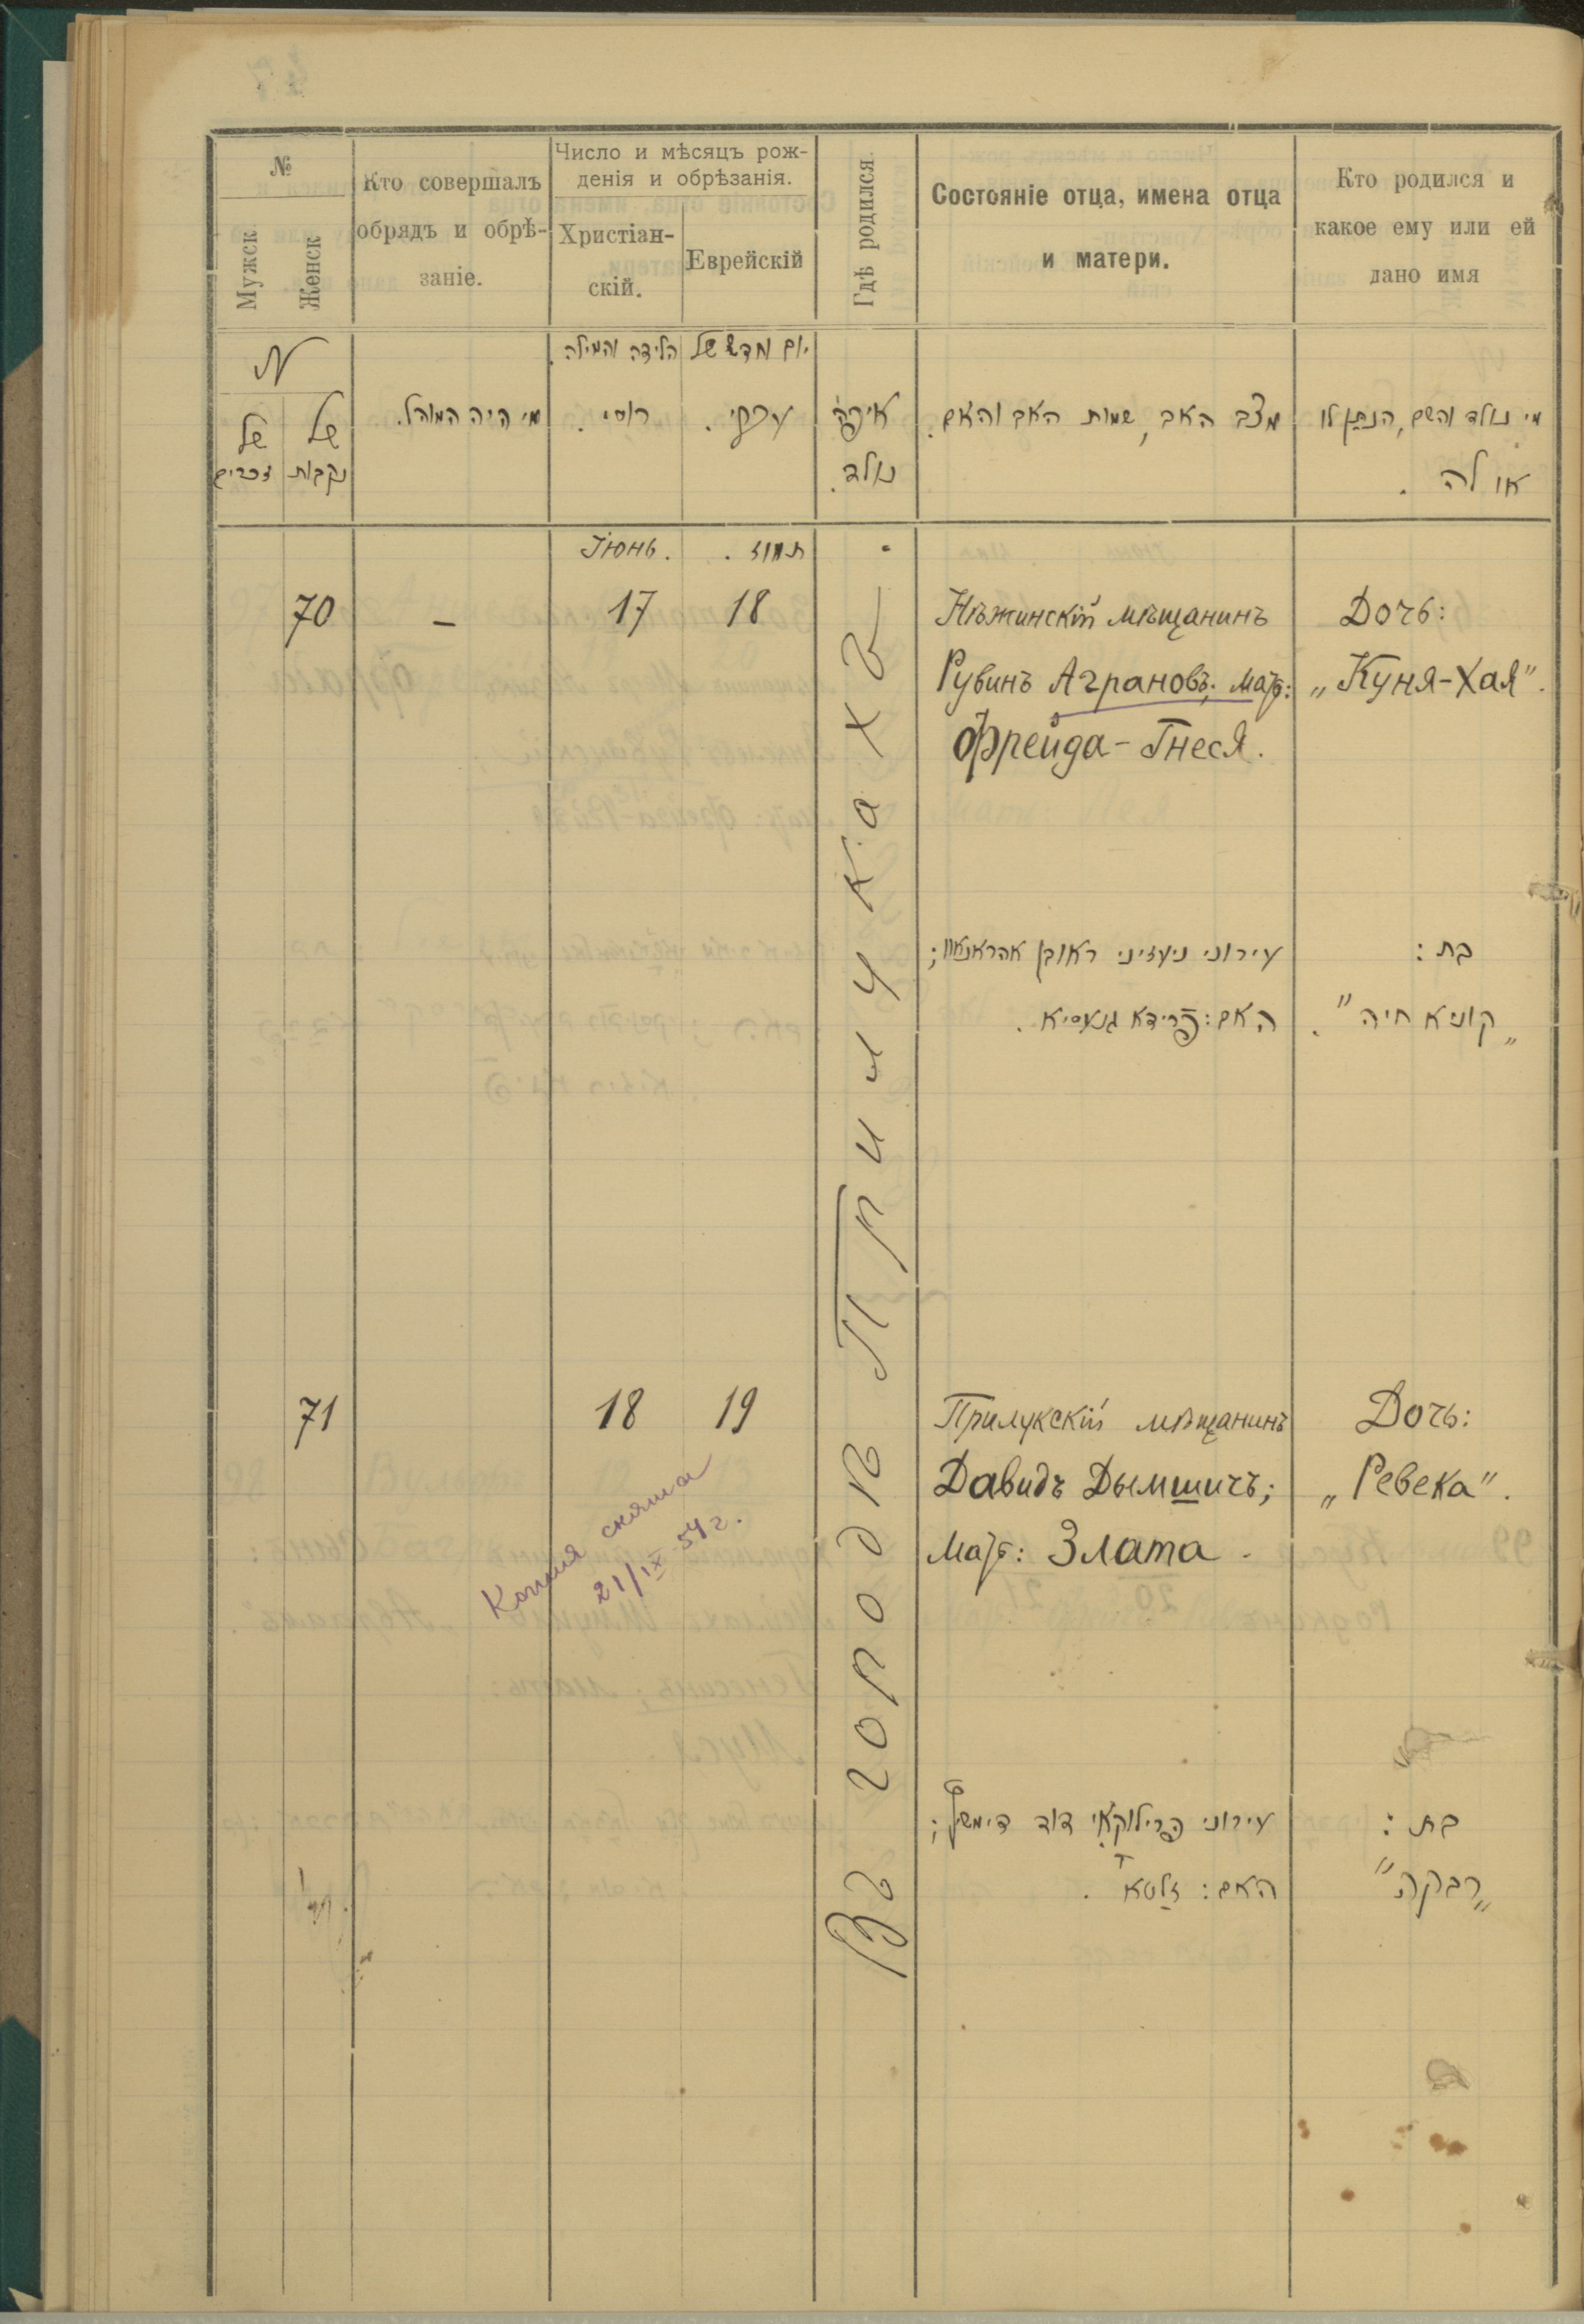 №
Мужск
Женск
Кто совершалъ
обрядъ и обрѣ-
заніе.
Число и мѣсяцъ рож-
денія и обрѣзанія.
Христіан-
скій.
Еврейскій
Гдѣ родился.
Состояніе отца, имена отца
и матери.
Кто родился и
какое ему или ей
дано имя
N
של
זכרים
של
נקבות
מי היה המוהל.
יום וחדש של הלידה והמילה.
רוסי.
עברי.
איפה
נולד.
מצב האב, שמות האב והאם.
מי נולד והשם, הנתן לו
או לה.
Іюнь.
תמוז.
70
—
17
18
Нѣжинскій мѣщанинъ
Рубинъ Аграновъ; мать:
Фрейда-Гнеся.
Дочь:
„Куня-Хая".
עירוני ניעזיני ראובן אגראנאוו;
האם: פרידא גנעסיא.
בת:
„קוניא חיה".
Въ городѣ Прилукахъ
71
18
19
Прилукскій мѣщанинъ
Давидъ Дымшичъ;
мать: Злата.
Дочь:
„Ревека".
Копия снята
21/IX-54 г.
עירוני פרילוקאי דוד דימשיץ;
האם: זלטא.
בת:
„רבקה"